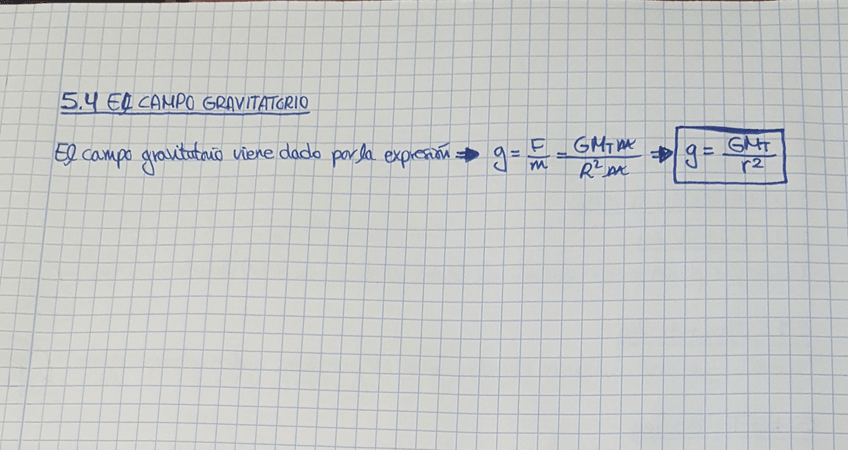 5.4 EL CAMPO GRAVITATORIO
El campo gravitatorio viene dado por la expresión → g = F/m = GM_T m/R² m → g = GM_T/r²